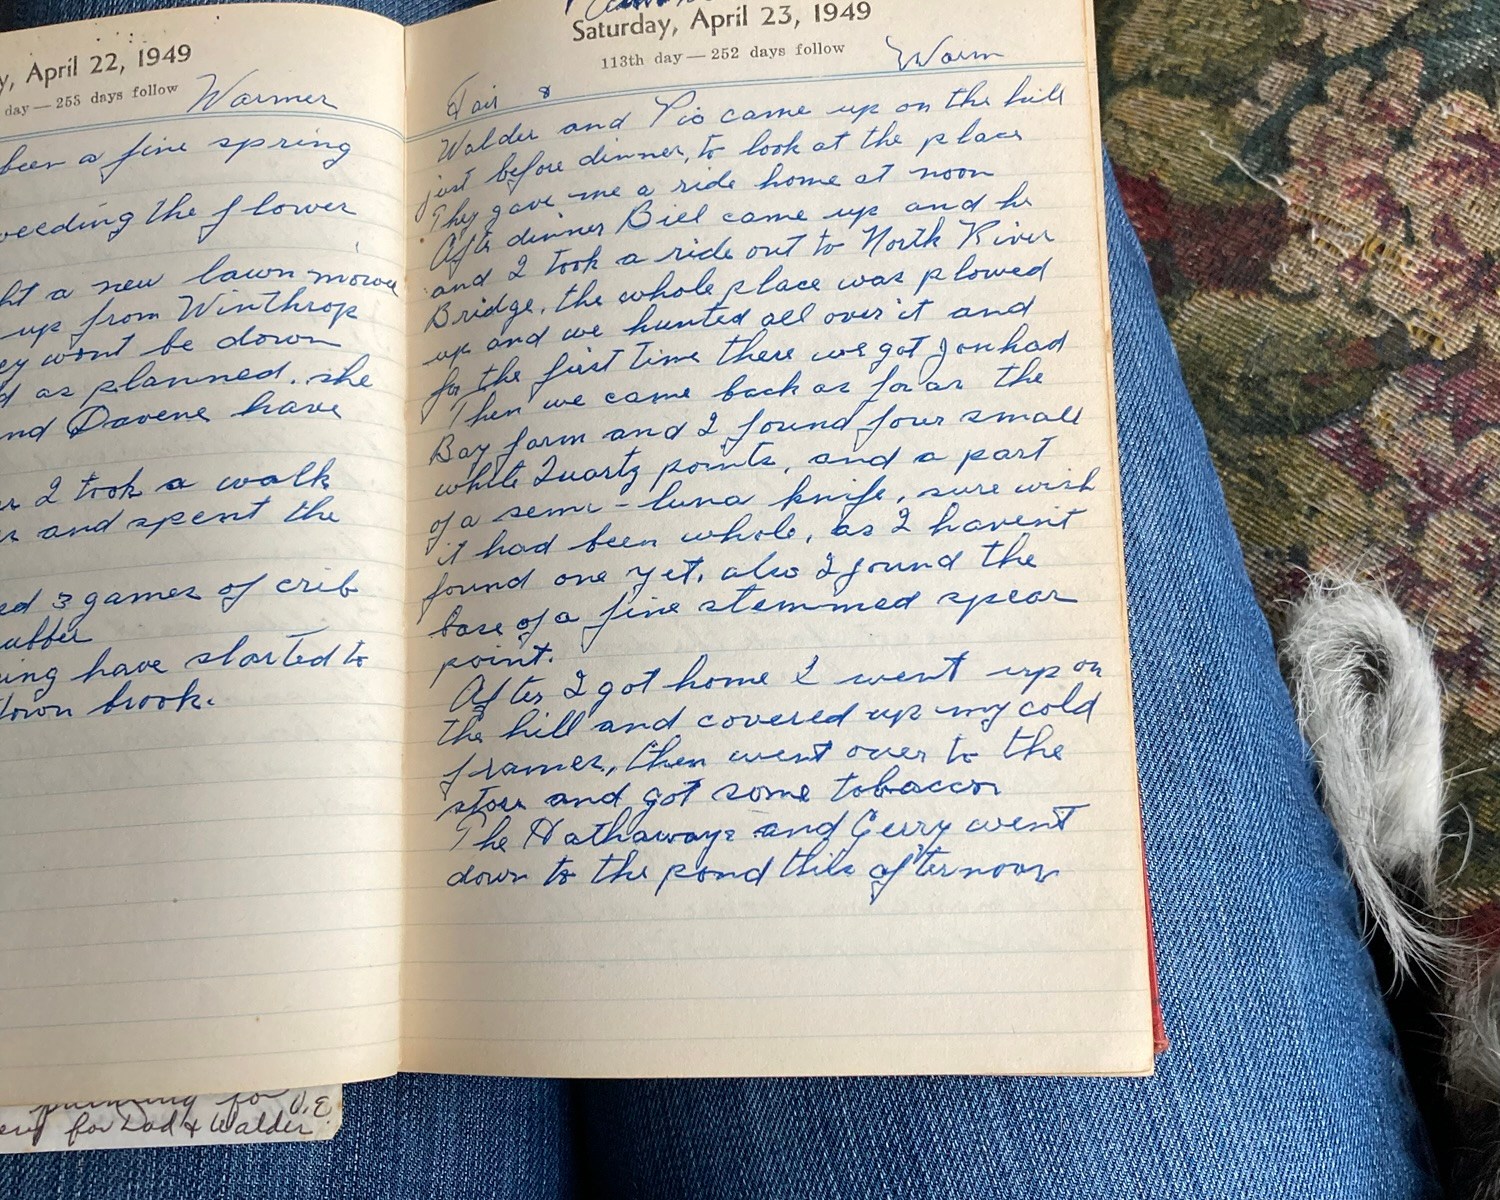 y, April 22, 1949
day — 255 days follow Warmer
been a fine spring
weeding the flower
ht a new lawn mower
up from Winthrop
ey wont be down
d as planned. she
nd Davene have
2 took a walk
and spent the
ed 3 games of crib
ubber
ing have started to
town brook.
Saturday, April 23, 1949
113th day — 252 days follow
Fair 8 Warm
Walder and Pio came up on the hill
just before dinner, to look at the place
They gave me a ride home at noon
After dinner Bill came up and he
and I took a ride out to North River
Bridge, the whole place was plowed
up and we hunted all over it and
for the first time there we got
Then we came back as far as the
Bay farm and I found four small
white Quartz points, and a part
of a semi-luna knife, sure wish
it had been whole, as I haven't
found one yet, also I found the
base of a fine stemmed spear
point.
After I got home I went up on
the hill and covered up my cold
frames, then went over to the
store and got some tobaccor
The Hathaways and Gerry went
down to the pond this afternoon
for
for Dad & Walder